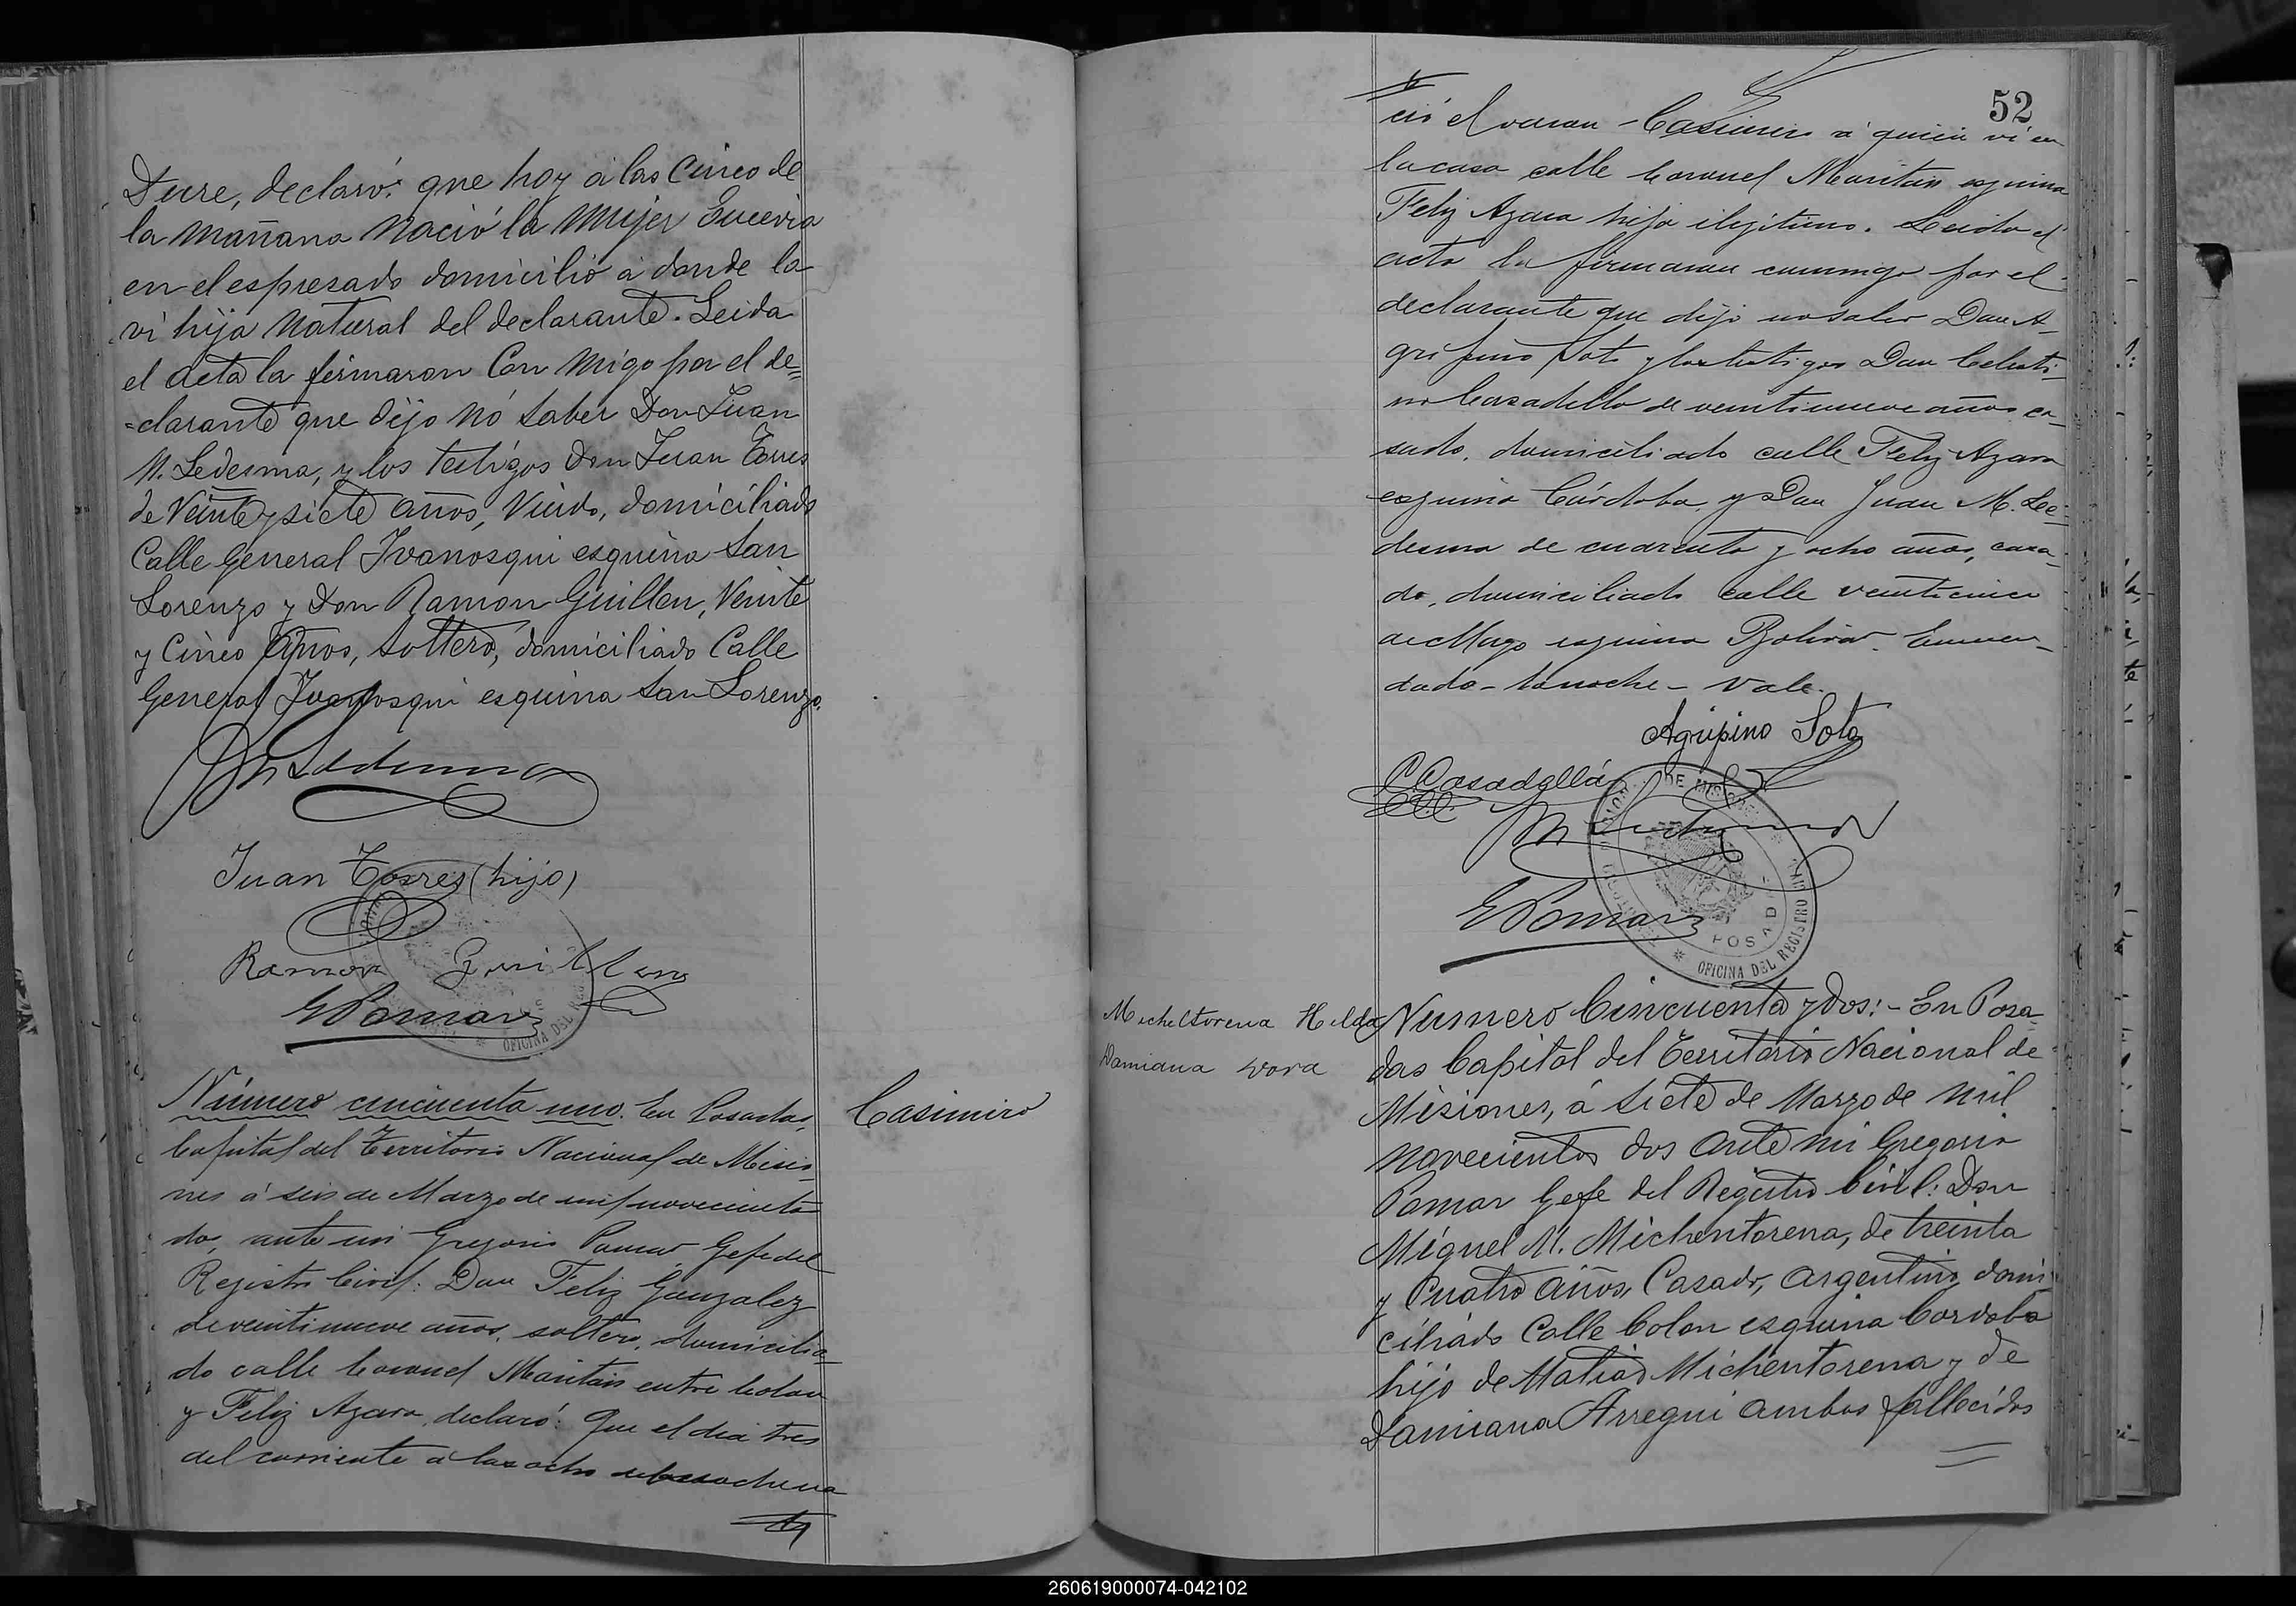 Dure, declaró: que hoy á las Cinco de
la mañana nació la mujer Eucevia
en el espresado domicilio á donde la
vi hija natural del declarante. Leida
el acta la firmaron Con migo por el de=
=clarante que dijo nó saber Don Juan
M. Ledesma, y los testigos don Juan Torres
de Veinte y siete años, Viudo, domiciliado
Calle General Ivanosqui esquina San
Lorenzo y Don Ramon Guillen, Veinte
y Cinco años, soltero, domiciliado Calle
General Ivanosqui esquina San Lorenzo.
JM Ledesma
Juan Torres (hijo)
Ramon Guillen
GPomar
OFICINA DEL REG
Número cincuenta uno. En Posadas,
Capital del Territorio Nacional de Misio-
nes á seis de Marzo de mil novecientos
dos, ante mi Gregorio Pomar Gefe del
Registro Civil: Don Feliz Gonzalez
de veintinueve años, soltero, domicilia-
do calle Coronel Maritan entre Colon
y Feliz Azara, declaró: Que el dia tres
del corriente á las ocho de la noche na
Casimiro
52
ció el varon Casimiro á quien ví en
la casa calle Coronel Maritan esquina
Feliz Azara hijo ilegitimo. Leida el
acta la firmaron conmigo por el
declarante que dijo no saber Don A-
gripino Soto y los testigos Don Celesti-
no Casadellá de veintinueve años, ca-
sado, domiciliado calle Feliz Azara
esquina Córdoba, y Don Juan M. Le-
desma de cuarenta y ocho años, casa-
do, domiciliado calle veinticinco
de Mayo esquina Bolivar. Enmen-
dado - la noche - Vale.
Agripino Soto
C Casadellá
JM Ledesma
GPomar
DE MISIONES
POSADAS
OFICINA DEL REGISTRO CIVIL
Micheltorena Hilda
Damiana Dora
Numero Cincuenta y dos: - En Posa-
das Capital del Territorio Nacional de
Misiones, á siete de Marzo de mil
novecientos dos ante mi Gregorio
Pomar Gefe del Registro Civil: Don
Miguel M. Michentorena, de treinta
y Cuatro años, Casado, argentino, domi
ciliado Calle Colon esquina Cordoba
hijo de Matias Michentorena y de
Damiana Arregui ambos fallecidos
260619000074-042102